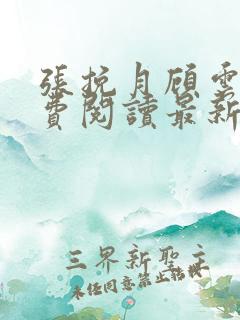 張抗月顾雲
費閱讀最新
三界新聖主
未经同意禁止转载